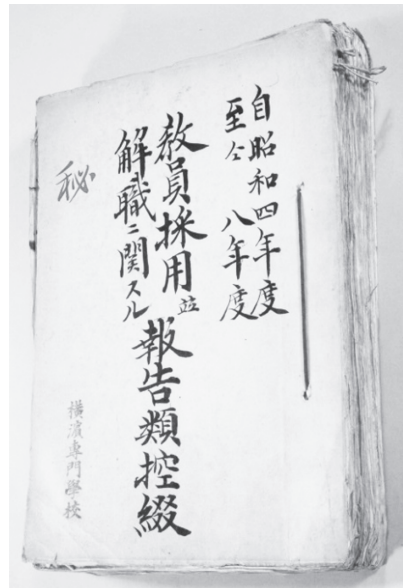 自昭和四年度
至仝八年度
教員採用並
解職ニ関スル
報告類控綴
秘
横濱専門學校